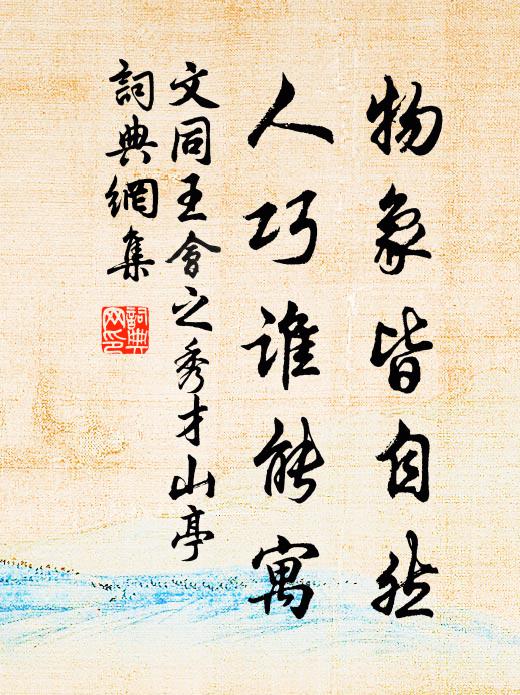 物象皆自然
人巧谁能寓
文同王會之秀才山亭
詞典網集
詞典
网印